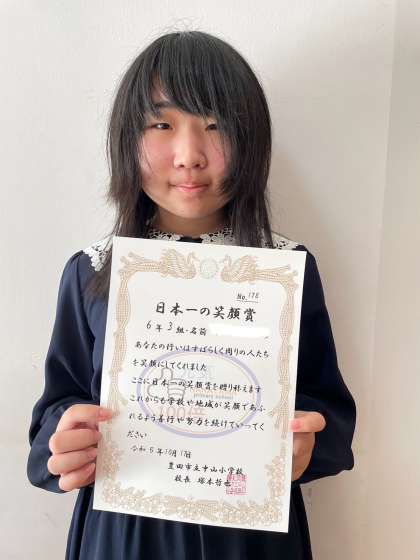 No. 178
日本一の笑顔賞
6年3組・名前
あなたの行いはすばらしく周りの人たち
を笑顔にしてくれました
ここに日本一の笑顔賞を贈り称えます
これからも学校や地域が笑顔であふ
れるよう善行や努力を続けていってく
ださい
primary school
100倍
令和5年10月17日
豊田市立中山小学校
校長 塚本哲也